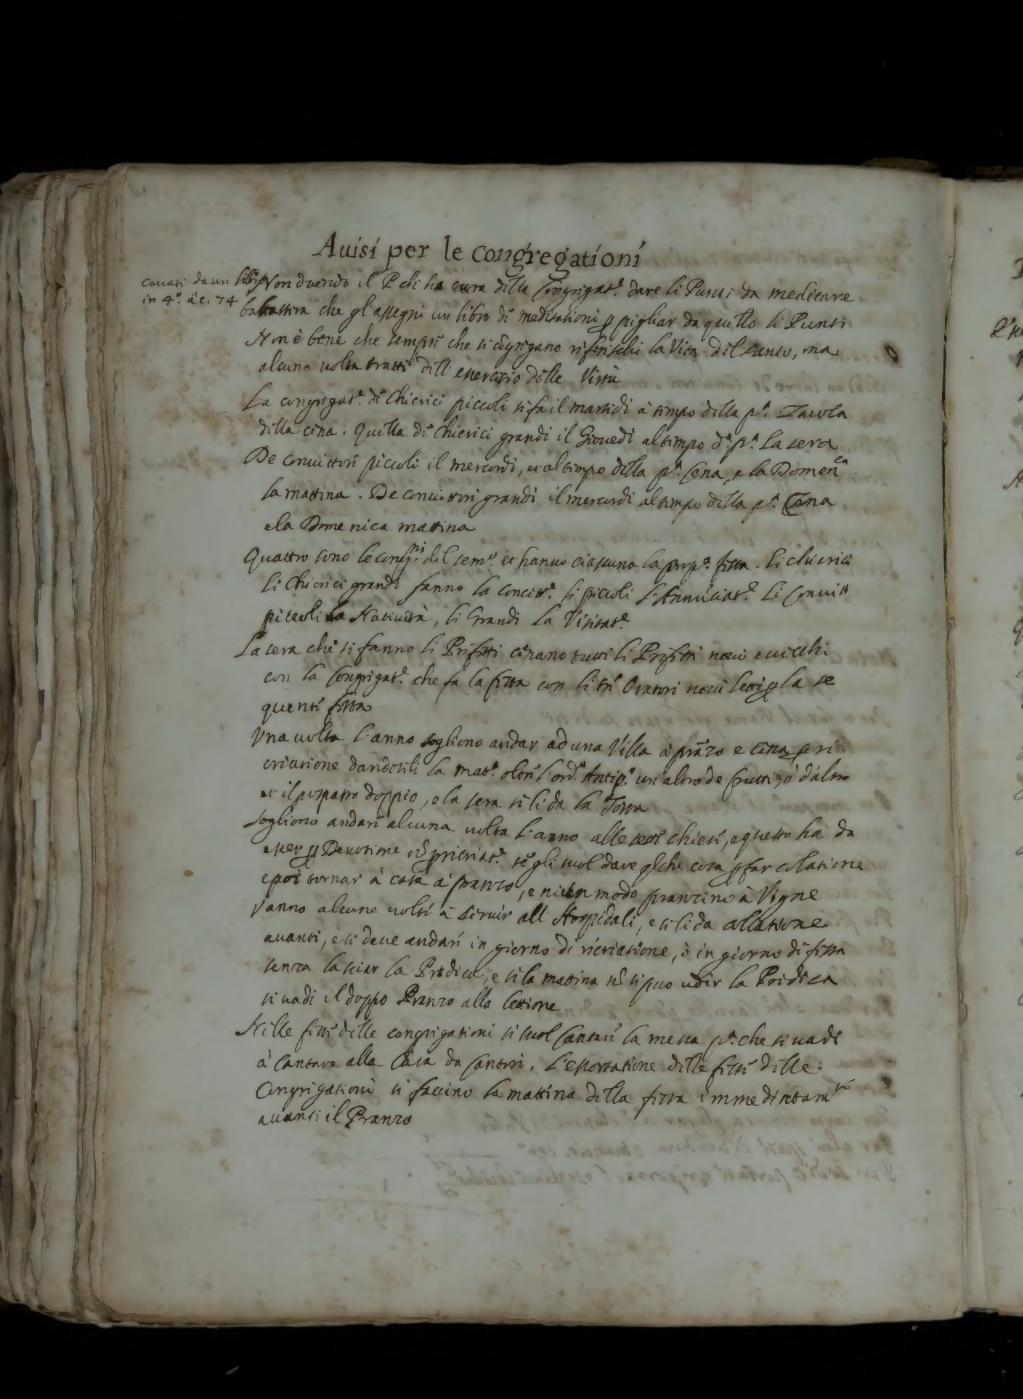 Auisi per le congregationi
cauati da un libro
in 4º. à c. 74
Non duendo il P. ch ha cura della Congregat.e dare li Punti da meditare
basta che gl'assegni un libro di meditationi p pigliar da quello li Punti
Non è bene che sempre che si cõgregano riferischi la Vita del santo, ma
alcuna volta tratti dell'essercitio delle Virtù
La congregat.e de Chierici piccoli si fa il martidi à tempo della p.a Tauola
della cena. Quella de Chierici grandi il Giouedi al tempo d.a p.a La sera
De conuittori piccoli il mercordi, et al tempo della p.a Cena, e la Domenca
la mattina. De conuittori grandi il mercordi al tempo della p.a Cena
e la Domenica mattina
Quattro sono le congni del sem.o et hanno ciascuna la prop.a festa. li chierici
Li Chierici grandi fanno la Concett.e li piccoli l'Annũciat.e Li Conuitt
piccoli la Natiuità, li Grandi la Visitat.e
La sera che si fanno li Prefetti cenano tutti li Prefetti noui e uecchi
con la Congregat.e che fa la festa con li tre Oratori noui letti p la se
quente festa
Vna uolta l'anno sogliono andar ad una Villa à prãzo e cena p ri
criatione dandosili la mat.a oltre l'ord.o Antip.o un altro de frutti, ò d'altro
et il pospasto doppio, e la sera si li da la Torta
Sogliono andare alcuna uolta l'anno alle sette chiese, e questo ha da
esser p Deuotione nõ pricriat.e se gli suol dare qlche cosa p far colatione
e poi tornar à casa à pranzo, e niun modo pranzino à Vigne
Vanno alcune uolte à seruir all' Hospidali, e si li da collatione
auanti, e si deue andare in giorno di ricriatione, ò in giorno di festa
senza lasciar la Predica, e si la mattina nõ si puo udir la Predica
si uadi il doppo Pranzo alla lettione
Nelle feste delle congregationi si suol Cantare la messa p.a che si uadi
à Cantare alla Casa da Cantori. L'essortatione delle feste delle
Congregationi si faccino la mattina della festa immediatamte
auanti il Pranzo